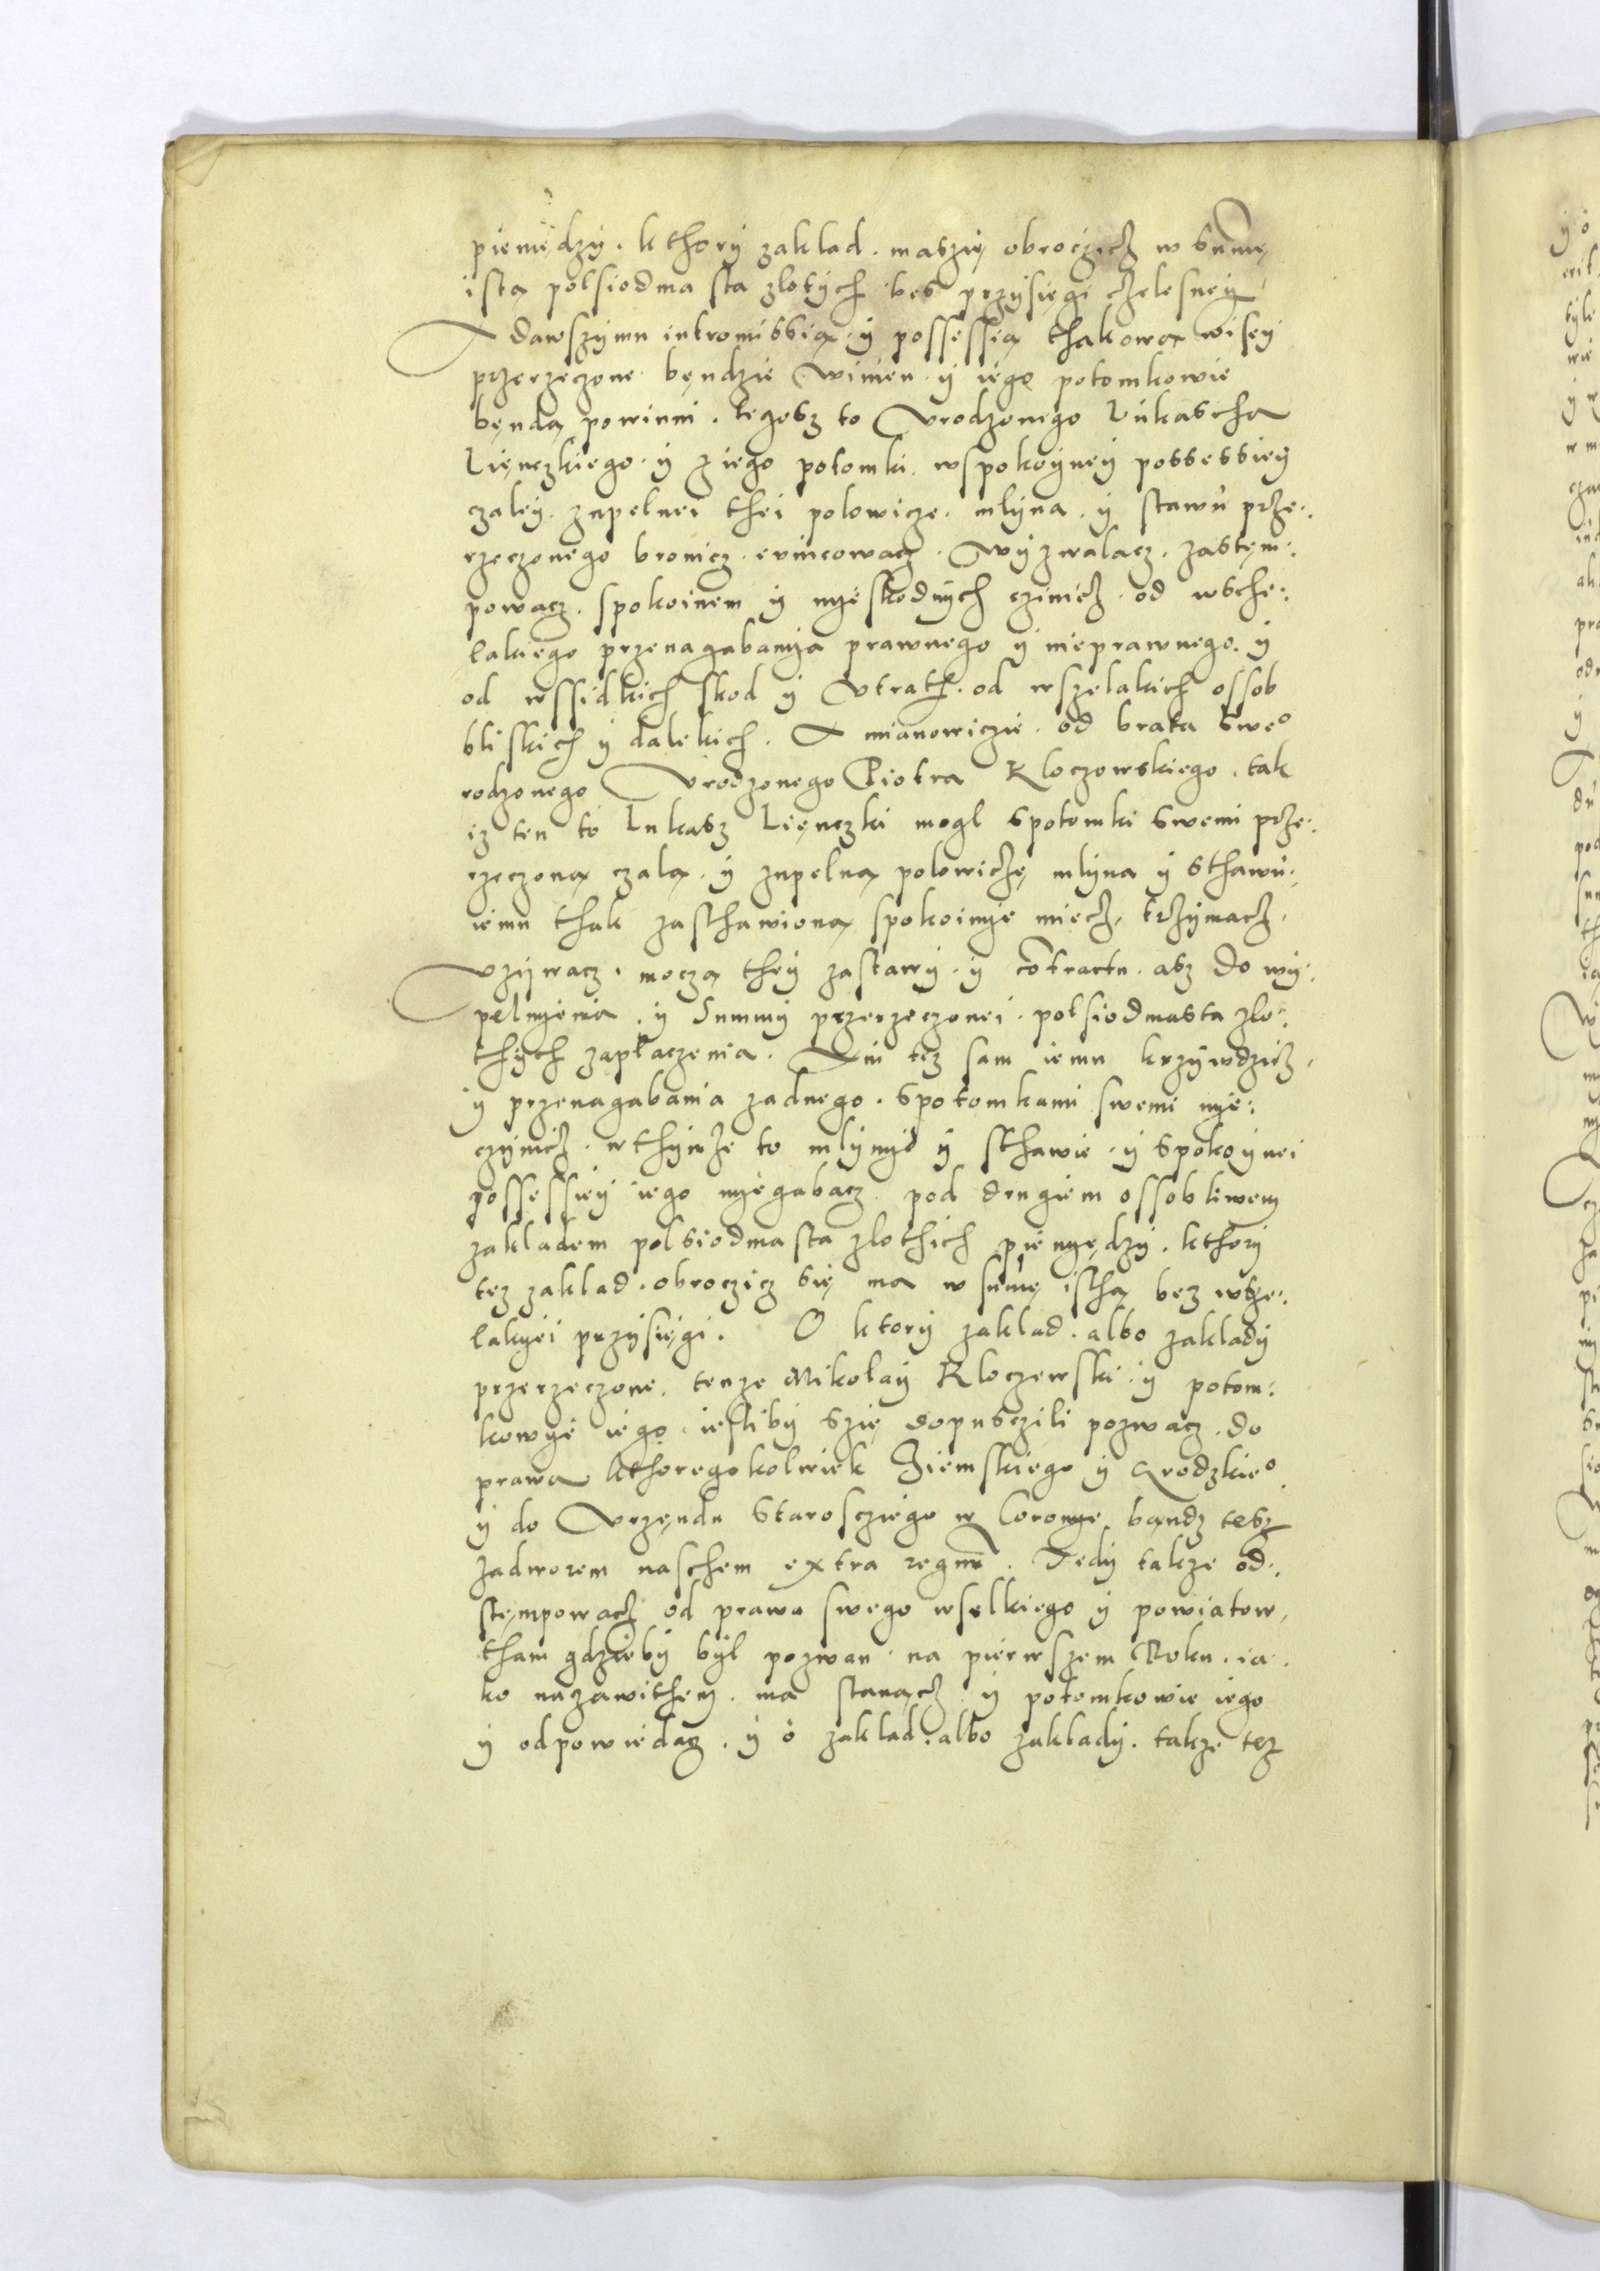 pieniędzy . kthory zaklad . maszię obroczicz w sum̃ę
istą polsiodma sta zlotych bes przysięgi czelesney
A dawszymu intromissią . y possessią thakową wisey
przerzeczone będzie winien y iego potomkowie
bęndą powinni . tegosz to Urodzonego Lukascha
Lięnczkiego . y z iego potomki . wspokoyney possessiey
czaley . zupelnei thei polowicze . mlyna . y stawu prze:
rzeczonego bronicz . evincowacz . wyzwalacz . zastęm:
powacz . spokoinem y nyeskodnych czinicz . od wsche:
lakiego przenagabanya prawnego y nieprawnego . y
od wssidkich skod y Utrath . od wszelakich ossob
bliskich y dalekich . A mianowiczie . od brata sweo
rodzonego Urodzonego Piotra Kloczowskiego . tak
iz ten to Lukasz Lięnczki mogl spotomki swemi prze:
rzeczoną czalą . y zupelną polowiczę mlyna y sthawu:
iemu thak zasthawioną spokoinye miecz, trzymacz,
Uzywacz . moczą they zastawy . y cõtractu . asz do wy:
pelnyenia . y Summy przerzeczonei . polsiodmasta zlo:
thych zaplaczenia . Ani tez sam iemu krzywdzicz,
y przenagabania zadnego . spotomkami swemi nye:
czynicz . wthymze to mlynye y sthawie . y spokoynei
possessiey iego nyegabacz pod drugiem ossobliwem
zakladem polsiodmasta zlothich pienyędzy . kthory
tez zaklad . obroczicz się ma w sum̃ę isthą bez wsze:
lakyei przysięgi . O ktory zaklad . albo zaklady
przerzeczone . tenze Mikolay Kloczewski . y potom:
kowye iego . iesliby szię dopusczili pozwacz . do
prawa kthoregokolwiek Ziemskiego y Grodzkieo
y do Urzęndu Starosciego w Coronye bąndz tesz
zadworem naschem extra regnũ . Tedy takze od:
stęmpowacz od prawa swego wselkiego y powiatow,
tham gdzieby byl pozwan . na pierwszem Roku . ia:
ko nazawithem . ma stanącz y potomkowie iego
y odpowiedacz . y o zaklad . albo zaklady . takze tez